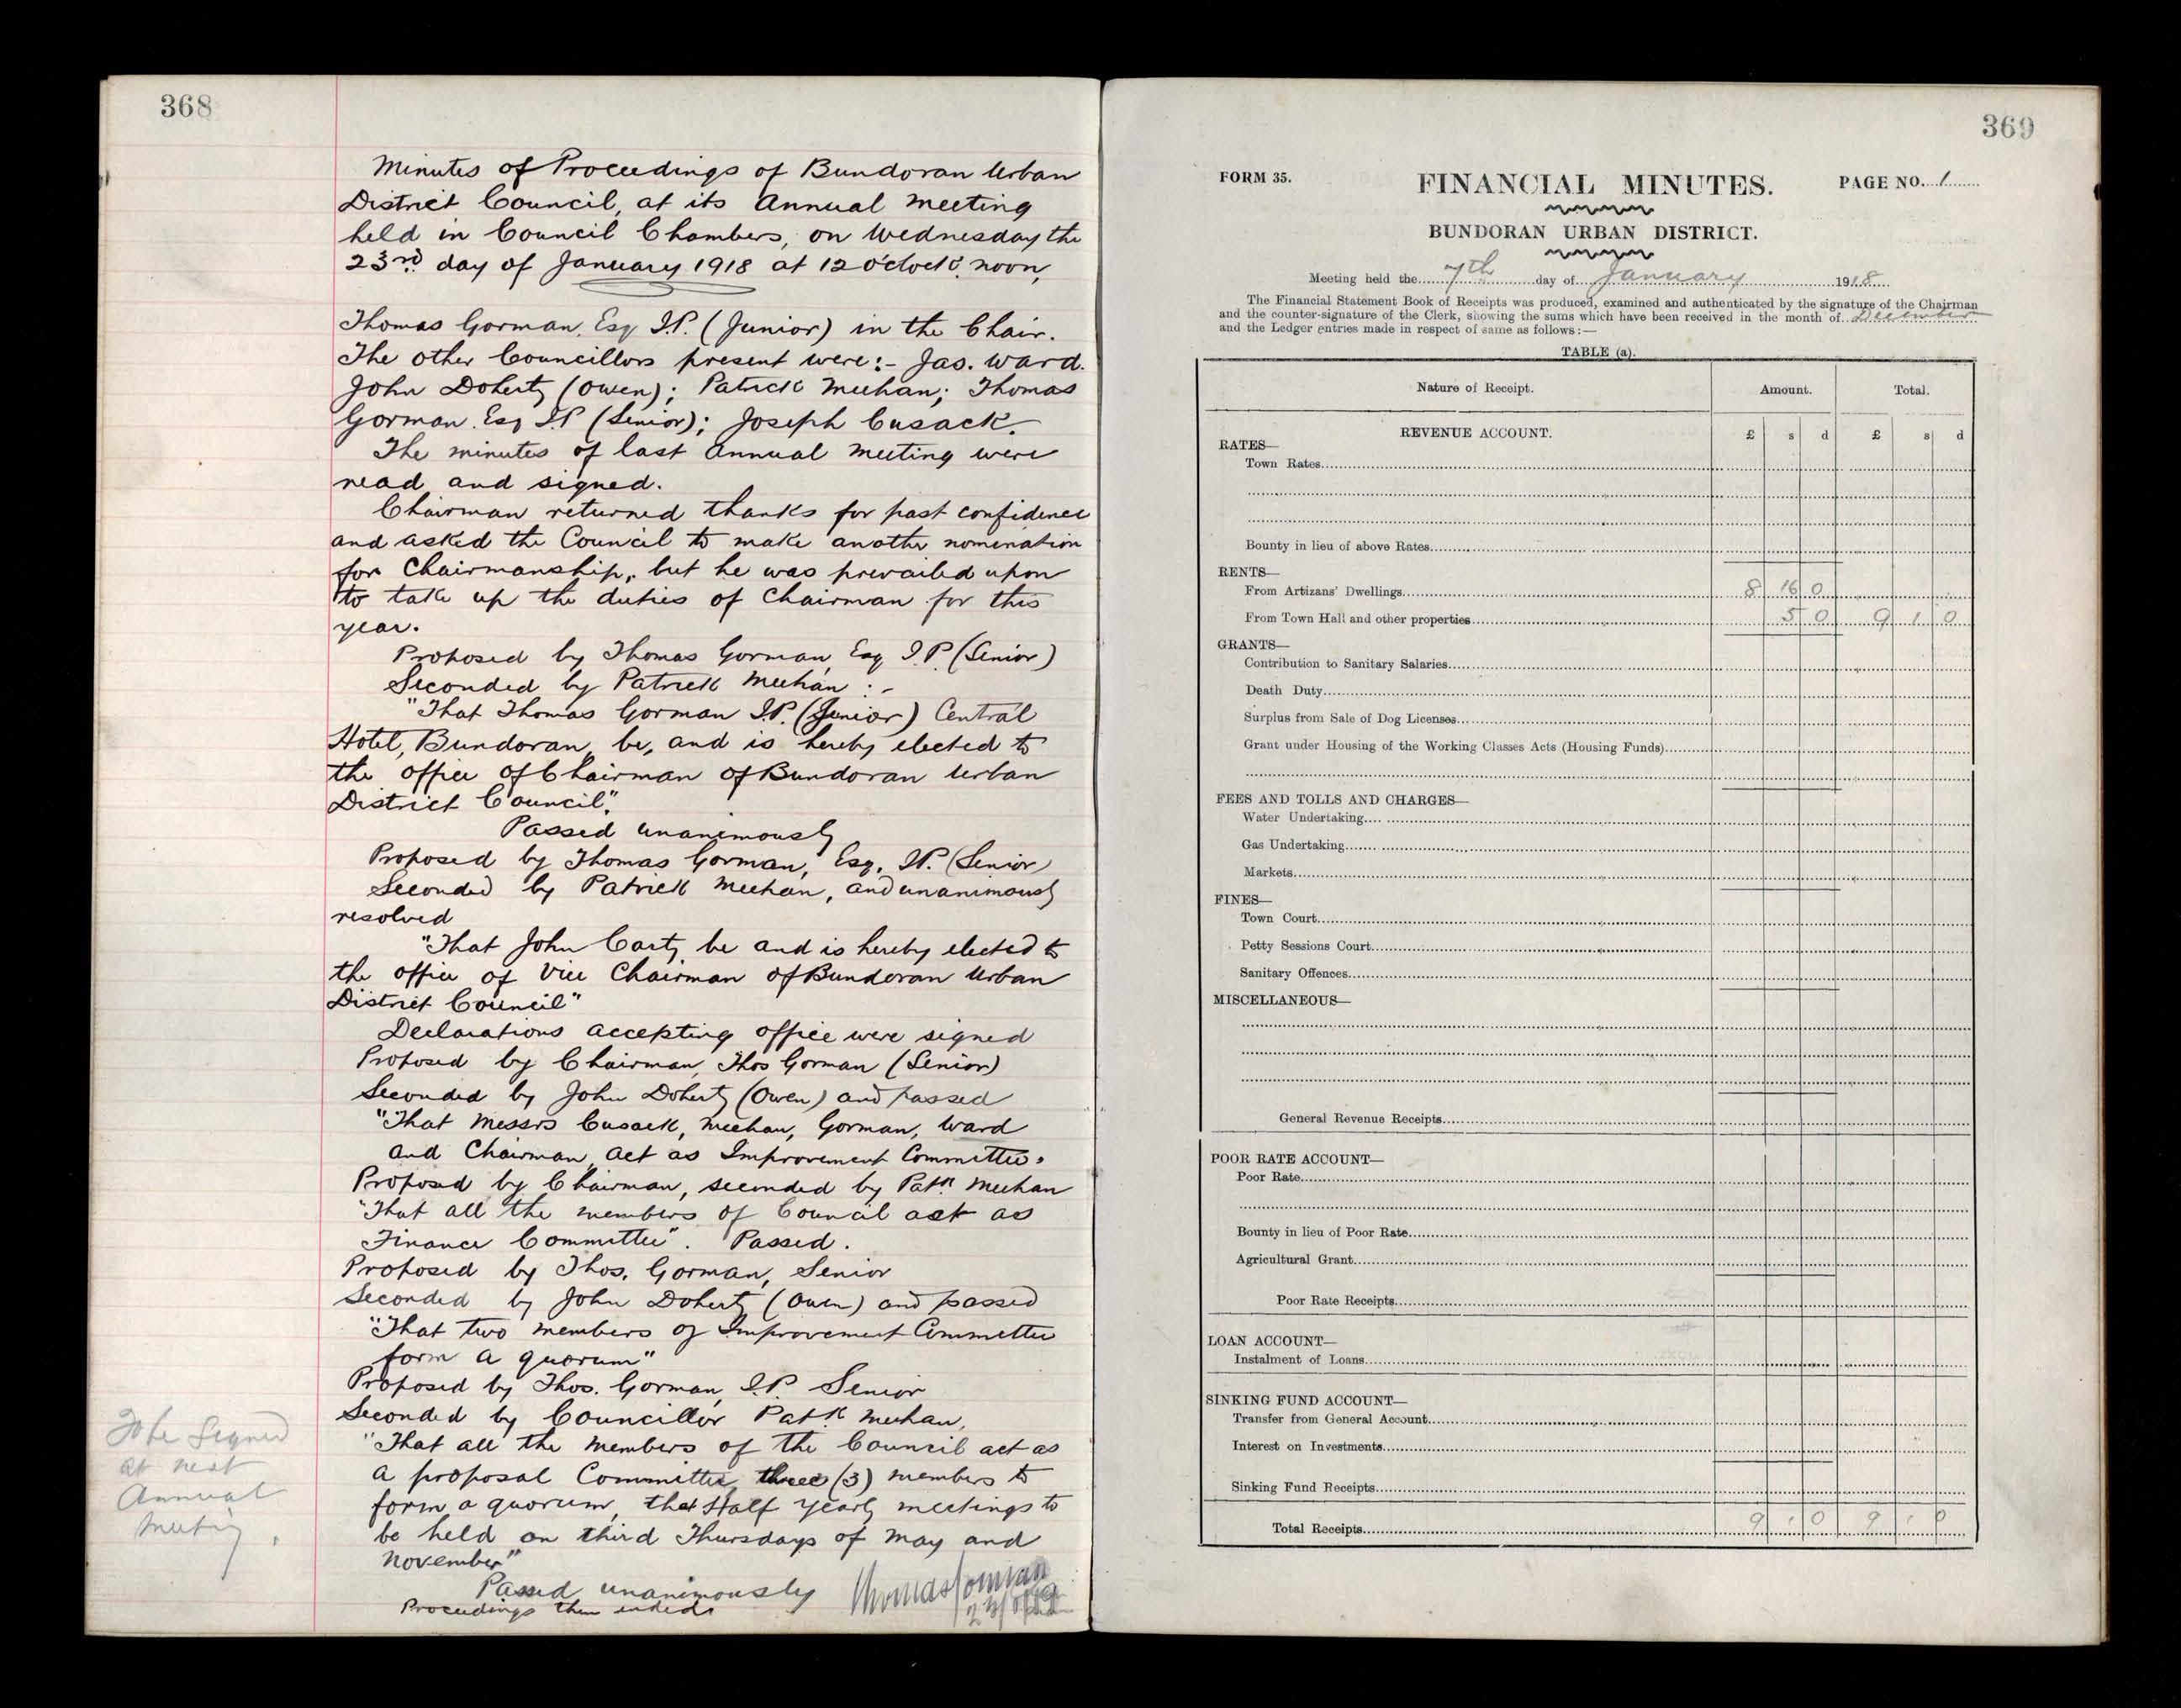 368
Minutes of Proceedings of Bundoran Urban
District Council, at its Annual Meeting
held in Council Chambers, on Wednesday the
23rd day of January 1918 at 12 o'clock noon,
Thomas Gorman Esq J.P. (Junior) in the Chair.
The other Councillors present were:- Jas. Ward.
John Doherty (Owen); Patrick Meehan; Thomas
Gorman Esq J.P (Senior); Joseph Cusack.
The minutes of last Annual Meeting were
read and signed.
Chairman returned thanks for past confidence
and asked the Council to make another nomination
for Chairmanship, but he was prevailed upon
to take up the duties of Chairman for this
year.
Proposed by Thomas Gorman Esq J.P. (Senior)
Seconded by Patrick Meehan :-
"That Thomas Gorman J.P. (Junior) Central
Hotel, Bundoran, be, and is hereby elected to
the office of Chairman of Bundoran Urban
District Council".
Passed unanimously
Proposed by Thomas Gorman, Esq, J.P. (Senior)
Seconded by Patrick Meehan, and unanimously
resolved
"That John Carty be and is hereby elected to
the office of Vice Chairman of Bundoran Urban
District Council"
Declarations accepting office were signed
Proposed by Chairman, Thos Gorman (Senior)
Seconded by John Doherty (Owen) and passed
"That Messrs Cusack, Meehan, Gorman, Ward
and Chairman act as Improvement Committee.
Proposed by Chairman, seconded by Patk Meehan
"That all the members of Council act as
Finance Committee". Passed.
Proposed by Thos. Gorman, Senior
Seconded by John Doherty (Owen) and passed
"That two members of Improvement Committee
form a quorum"
Proposed by Thos. Gorman J.P. Senior
Seconded by Councillor Patk Meehan,
"That all the members of the Council act as
a proposal Committee three (3) members to
form a quorum, that Half Yearly meetings to
be held on third Thursdays of May and
November"
Passed unanimously
Proceedings then ended
Thomas Gorman
To be signed
at next
Annual
Meeting.
369
FORM 35.
FINANCIAL MINUTES.
PAGE NO. 1
BUNDORAN URBAN DISTRICT.
Meeting held the 7th day of January 1918
The Financial Statement Book of Receipts was produced, examined and authenticated by the signature of the Chairman
and the counter-signature of the Clerk, showing the sums which have been received in the month of December
and the Ledger entries made in respect of same as follows:—
TABLE (a).
Nature of Receipt. Amount. Total.
REVENUE ACCOUNT. £ s d £ s d
RATES—
Town Rates
Bounty in lieu of above Rates
RENTS—
From Artizans' Dwellings 8 16 0
From Town Hall and other properties 5 0 9 1 0
GRANTS—
Contribution to Sanitary Salaries
Death Duty
Surplus from Sale of Dog Licenses
Grant under Housing of the Working Classes Acts (Housing Funds)
FEES AND TOLLS AND CHARGES—
Water Undertaking
Gas Undertaking
Markets
FINES—
Town Court
Petty Sessions Court
Sanitary Offences
MISCELLANEOUS—
General Revenue Receipts
POOR RATE ACCOUNT—
Poor Rate
Bounty in lieu of Poor Rate
Agricultural Grant
Poor Rate Receipts
LOAN ACCOUNT—
Instalment of Loans
SINKING FUND ACCOUNT—
Transfer from General Account
Interest on Investments
Sinking Fund Receipts
Total Receipts 9 1 0 9 1 0